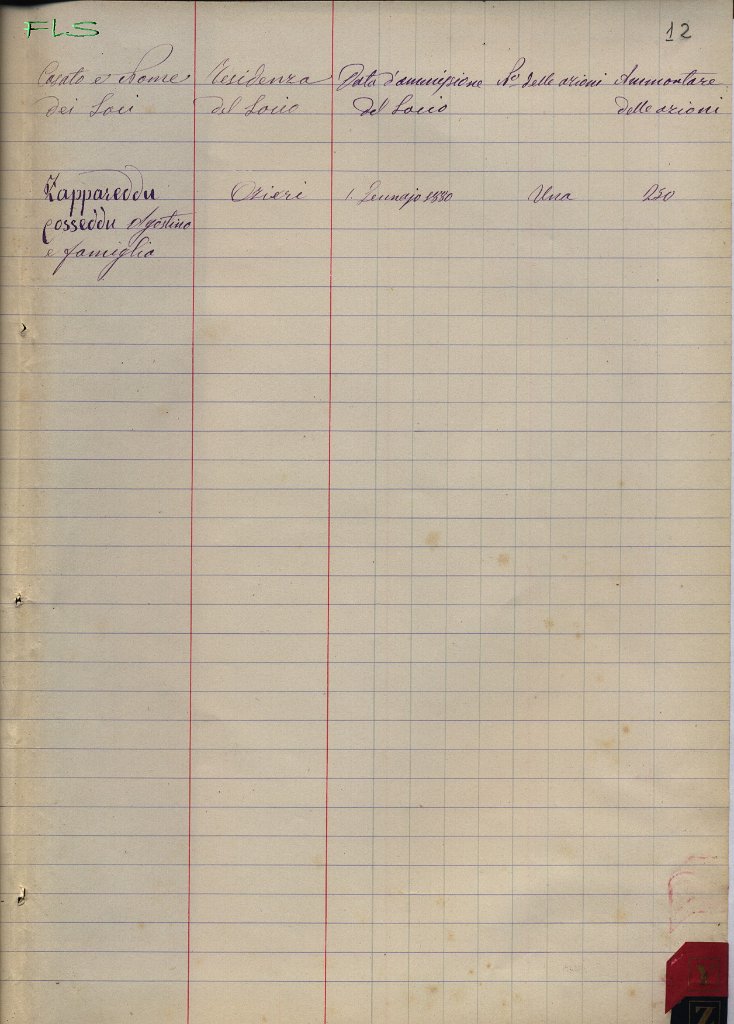 FLS
12
Casato e Nome Residenza Data d'ammissione N.º delle azioni Ammontare
dei Soci del Socio del Socio delle azioni
Zappareddu Ozieri 1. Gennajo 1880 Una 250
posseddu Agostino
e famiglia
Y
Z